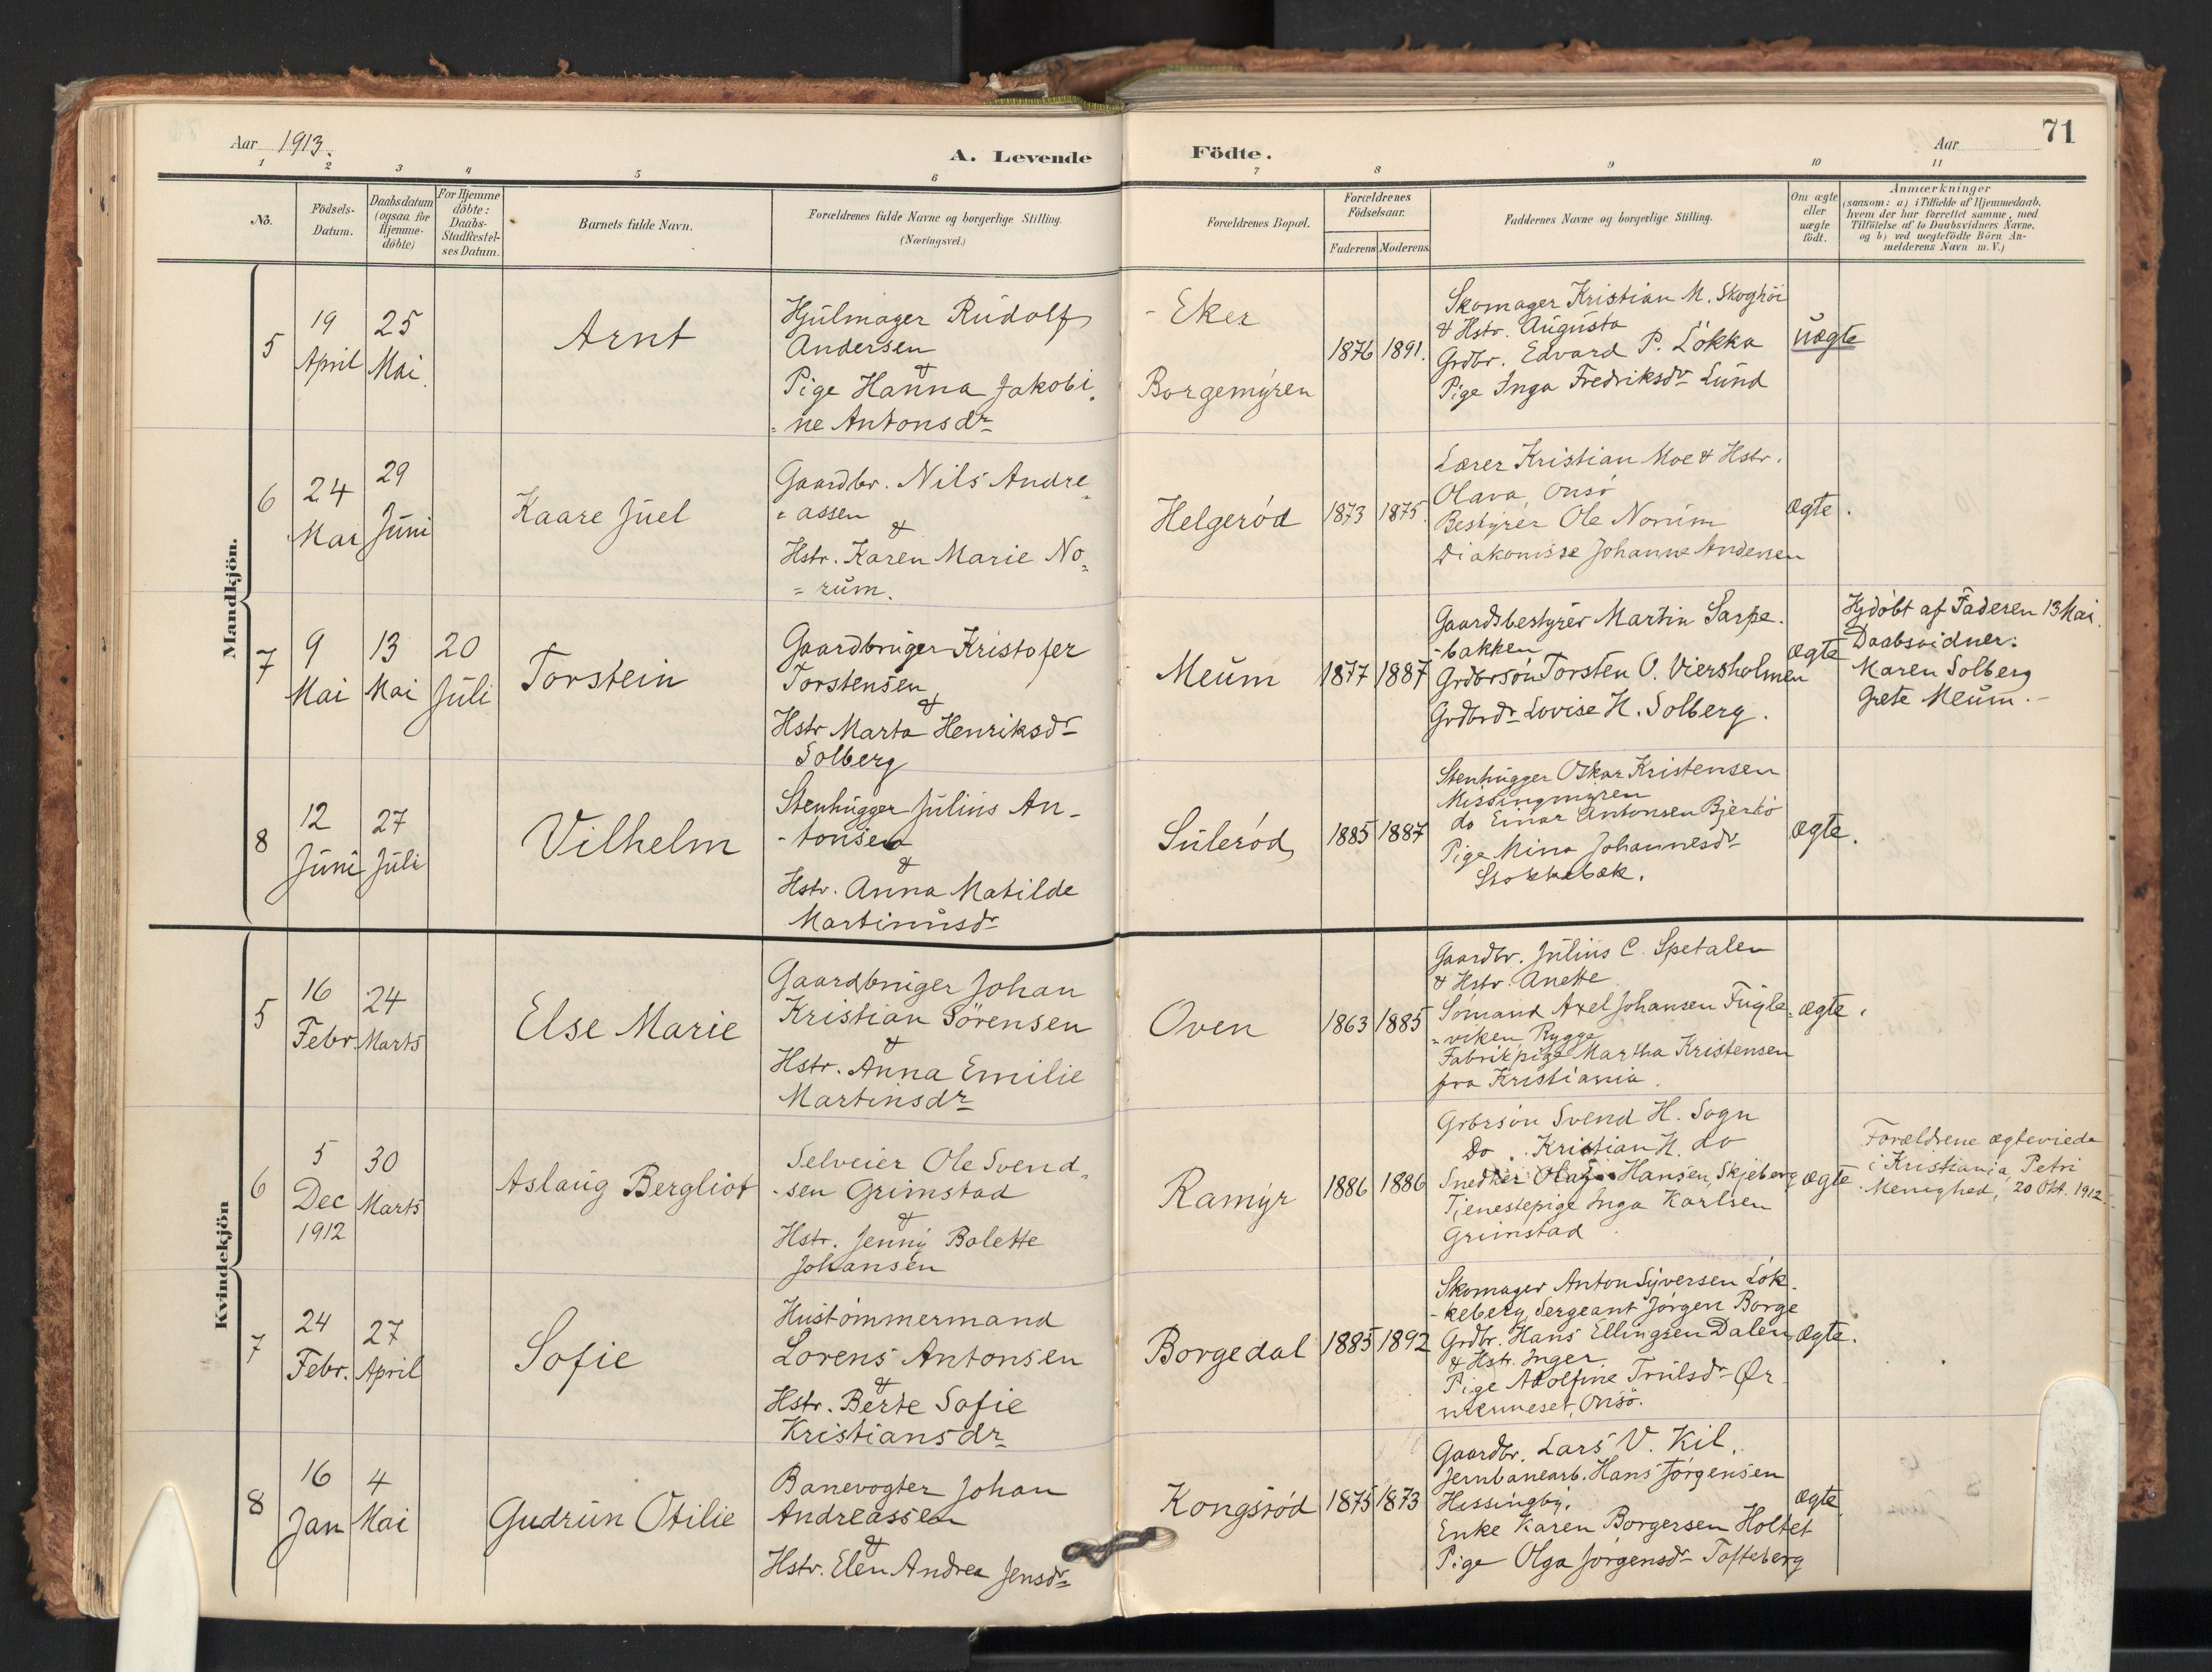 Aar 1913.
A. Levende
Födte.
Aar
71
1 2 3 4 5 6 7 8 9 10 11
Nö.
Födsels-
Datum.
Daabsdatum
(ogsaa for
Hjemme-
döbte)
For Hjemme
döbte:
Daabs-
Stadfæstel-
ses Datum.
Barnets fulde Navn.
Forældrenes fulde Navne og borgerlige Stilling.
(Næringsvei.)
Forældrenes Bopæl.
Forældrenes
Födselsaar.
Faderens Moderens
Faddernes Navne og borgerlige Stilling.
Om ægte
eller
uægte
födt.
Anmærkninger
(saasom: a) i Tilfælde af Hjemmedaab,
hvem der har forrettet samme, med
Tilföielse af to Daabsvidners Navne,
og b) ved uægtefödte Börn An-
melderens Navn m. V.)
Mandkjön.
5
19
April
25
Mai.
Arnt
Hjulmager Rudolf
Andersen
&
Pige Hanna Jakobi
ne Antonsdr
Eker
Borgemyren
1876 1891.
Skomager Kristian M. Skoghöi
& Hstr. Augusta
Grdbr. Edvard P. Lökka
Pige Inga Fredriksdr Lund
uægte
6
24
Mai
29
Juni
Kaare Juel
Gaardbr. Nils Andre
assen
&
Hstr. Karen Marie No
rum.
Helgeröd
1873 1875.
Lærer Kristian Moe & Hstr.
Olava, Onsö
Bestyrer Ole Norum
Diakonisse Johanne Andersen
ægte.
7
9
Mai
13
Mai
20
Juli
Torstein
Gaardbruger Kristofer
Torstensen
&
Hstr Marta Henriksdr
Solberg
Meum
1877 1887
Gaardsbestyrer Martin Sarpe-
-bakken
Grdbrsön Torsten O. Viersholmen
Grdbrdr Lovise H. Solberg.
ægte
Hjdöbt af Faderen 13 Mai.
Daabsvidner:
Maren Solberg
Grete Meum.-
8
12
Juni
27
Juli
Vilhelm
Stenhugger Julius An-
-tonsen
&
Hstr. Anna Matilde
Martinusdr
Suleröd
1885 1887
Stenhugger Oskar Kristensen
Missingmyren
do Einar Antonsen Bjerkö
Pige Mina Johannesdr
Stokkebæk.
ægte.
Kvindekjön
5
16
Febr.
24
Marts
Else Marie
Gaardbruger Johan
Kristian Sörensen
&
Hstr. Anna Emilie
Martinsdr
Oven
1863 1885
Gaardbr. Julius C. Spetalen
& Hstr. Anette
Sömand Axel Johansen Fugle
viken, Rygge
Fabrikpige Martha Kristensen
fra Kristiania.
ægte.
6
5
Dec
1912
30
Marts
Aslaug Bergliot
Selveier Ole Svend
-sen Grimstad
&
Hstr. Jenny Bolette
Johansen
Ramyr
1886 1886
Grbrsön Svend H. Sogn
Do . Kristian H. do
Snedker Olaf Hansen, Skjeberg
Tjenestepige Inga Karlsen
Grimstad
ægte
Forældrene ægteviede
i Kristiania, Petri
Menighed, 20 Okt. 1912.
7
24
Febr.
27
April
Sofie
Hustömmermand
Lorens Antonsen
&
Hstr. Berte Sofie
Kristiansdr
Borgedal
1885 1892
Skomager Anton Syversen Lök-
-keberg, Sergeant Jörgen Borge
Grdbr. Hans Ellingsen Dalen
& Hstr. Inger
Pige Adolfine Trulsdr Ør
Onsö.
ægte.
8
16
Jan
4
Mai
Gudrun Otilie
Banevogter Johan
Andreassen
&
Hstr. Elen Andrea Jensdr
Kongsröd
1875 1873
Gaardbr. Lars V. Kil.
Jernbanearb. Hans Jörgensen
Hissingby.
Enke Karen Borgersen Holtet
Pige Olga Jörgensdr Tofteberg
ægte